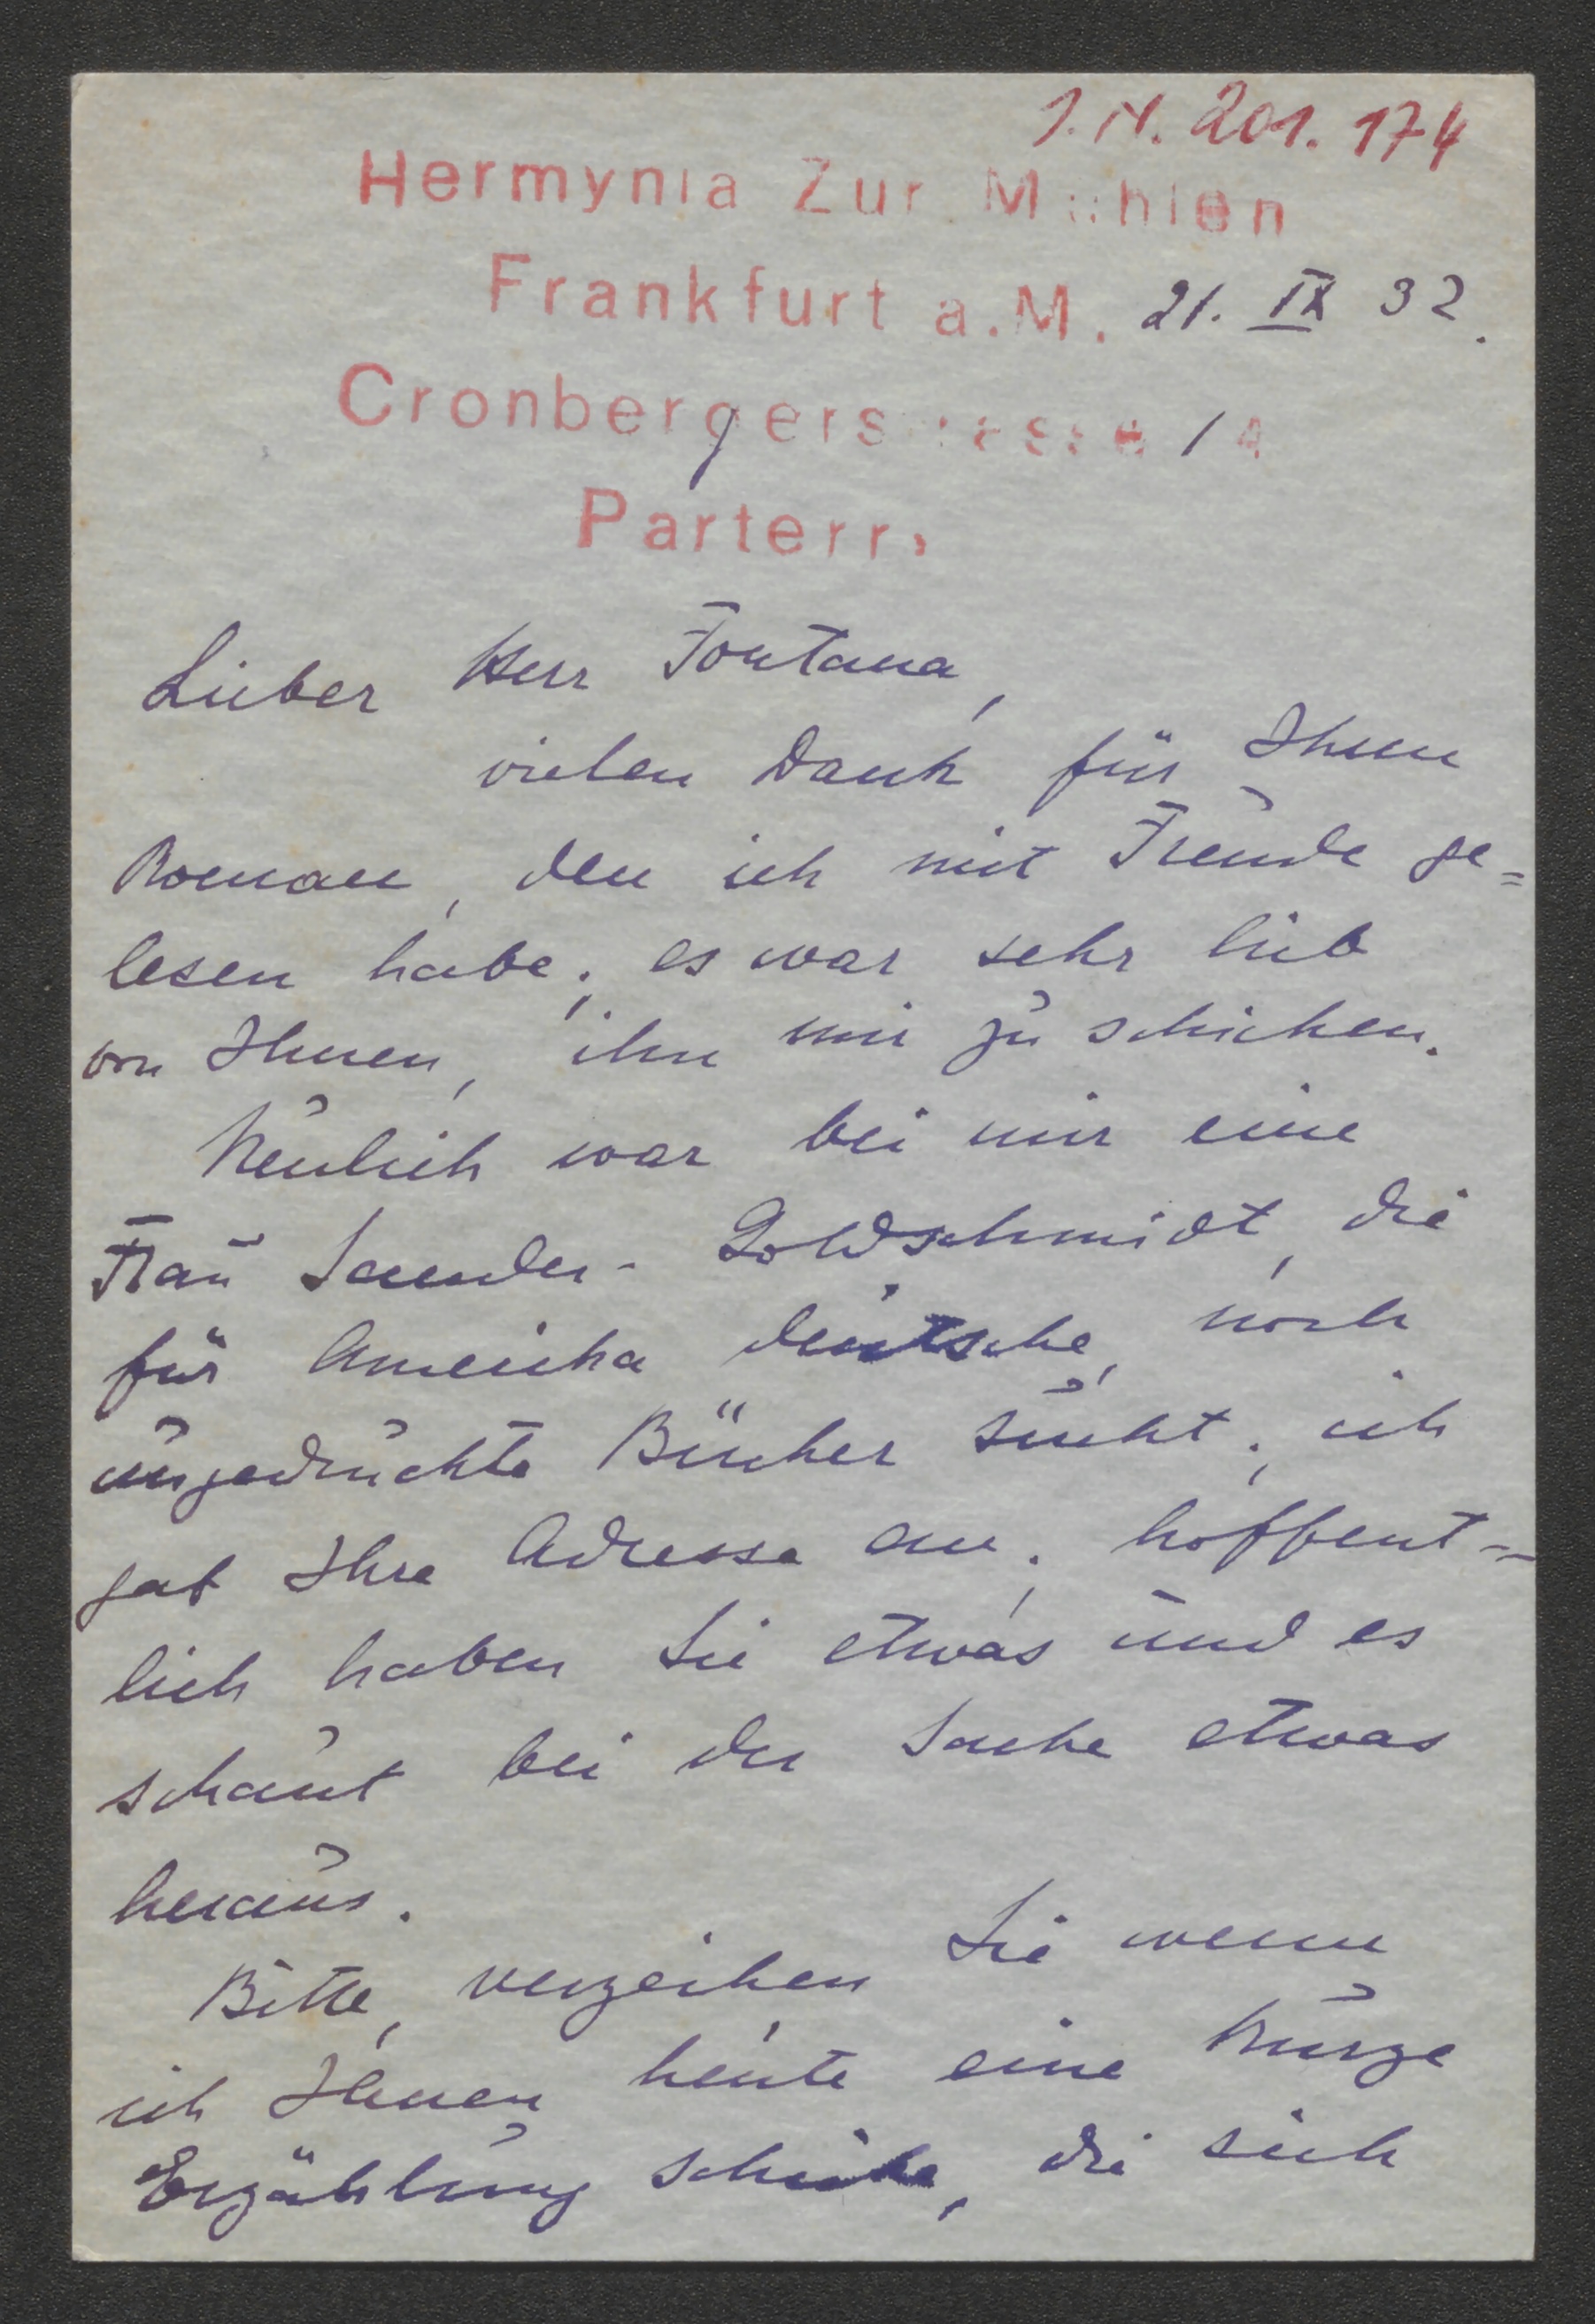 I.N. 201.174
Hermynia Zur Mühlen
Frankfurt a.M. 21. IX 32.
Cronbergerstrasse 14
Parterre
Lieber Herr Fontana,
vielen Dank für Ihren
Roman, den ich mit Freude ge=
lesen habe; es war sehr lieb
von Ihnen, ihn mir zu schicken.
Neulich war bei mir eine
Frau Goldschmidt, die
für Amerika deutsche, noch
ungedruckte Bücher sucht; ich
gab Ihre Adresse an; hoffent=
lich haben Sie etwas und es
schaut bei der Sache etwas
heraus.
Bitte, verzeihen Sie, wenn
ich Ihnen heute eine kurze
Erzählung schicke, die sich